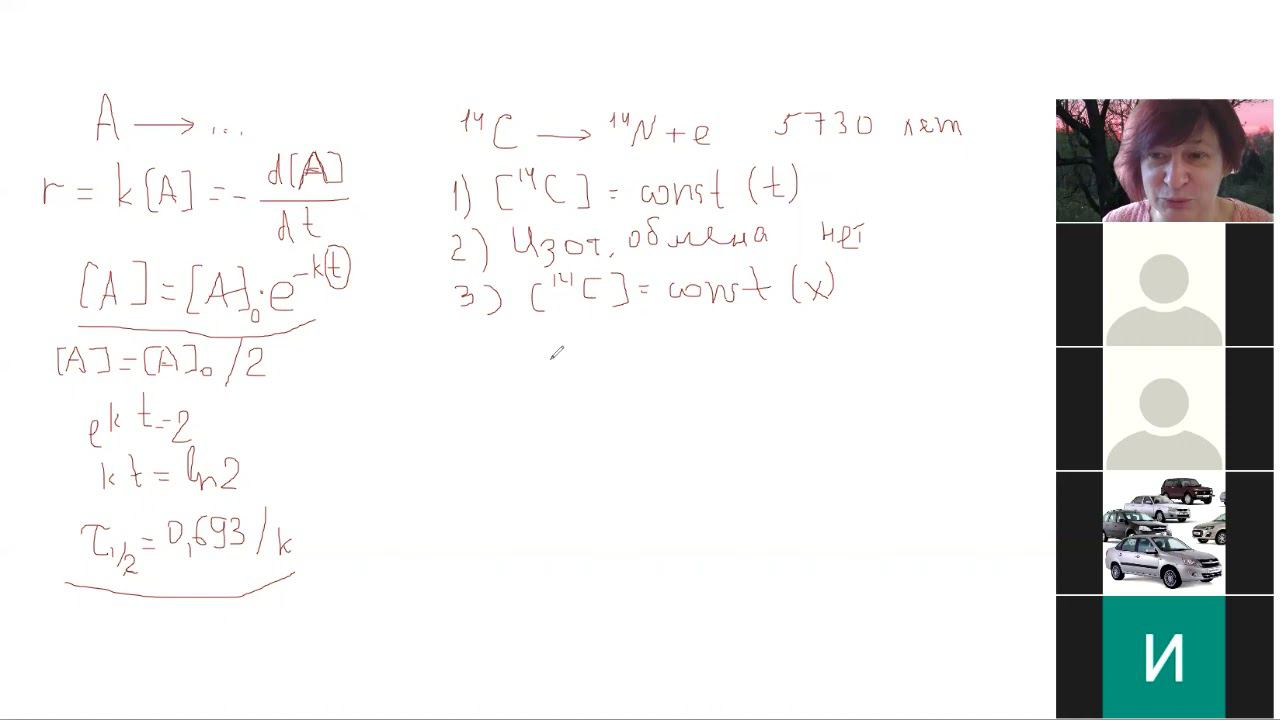 A → ...
r = k[A] = - d[A]/dt
[A] = [A]₀·e^(-kt)
[A] = [A]₀/2
e^(kt) = 2
kt = ln2
τ₁/₂ = 0,693/k
¹⁴C → ¹⁴N + e 5730 лет
1) [¹⁴C] = const (t)
2) Изот. обмена нет
3) [¹⁴C] = const (x)
И